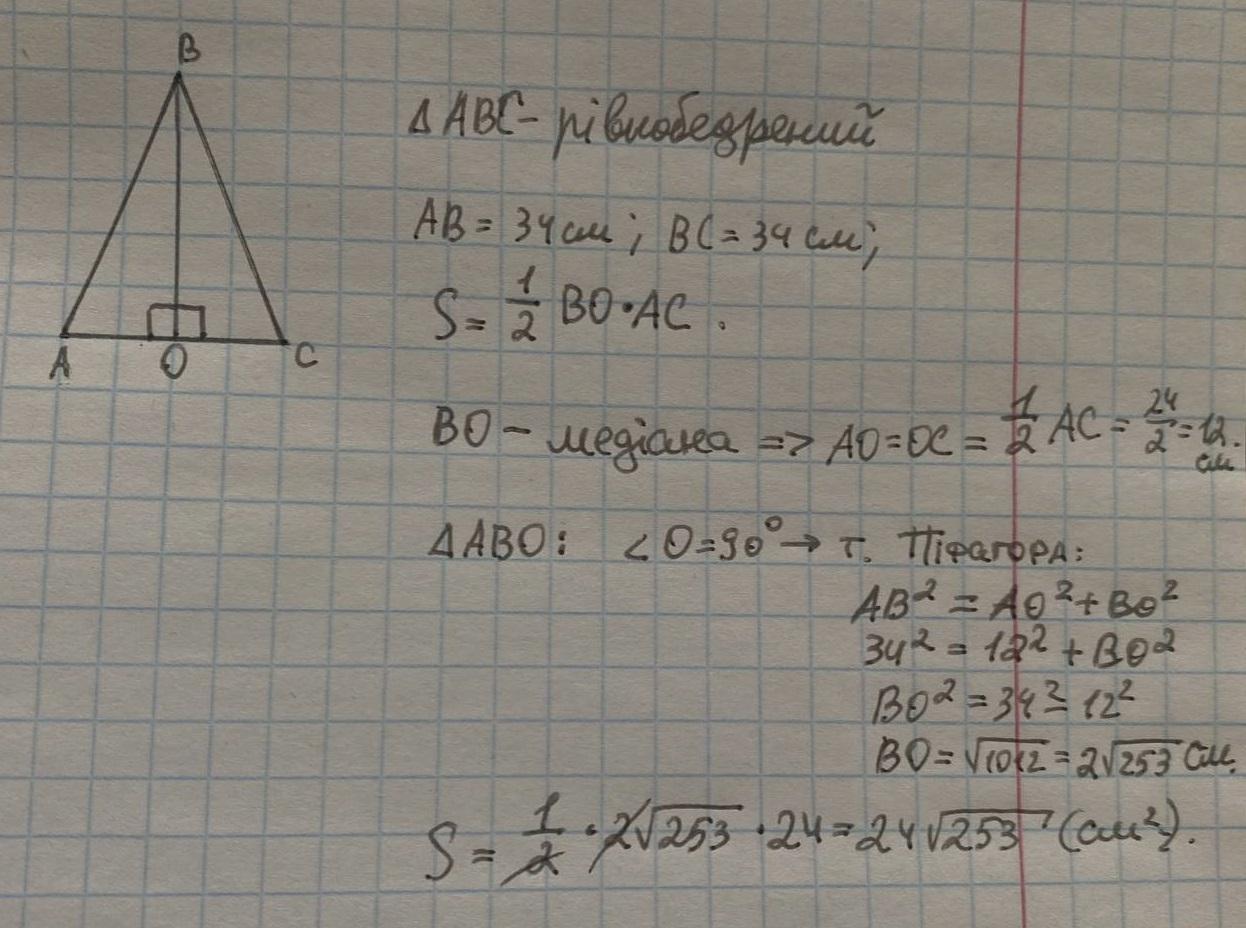 B
Δ ABC - рівнобедрений
AB = 34 см ; BC = 34 см;
S = 1/2 BO · AC .
A O C
BO - медіана => AO = OC = 1/2 AC = 24/2 = 12. см
Δ ABO : < O = 90° → т. Піфагора:
AB² = AO² + BO²
34² = 12² + BO²
BO² = 34² - 12²
BO = √1012 = 2√253 см.
S = 1/2 · 2√253 · 24 = 24√253 (см²).